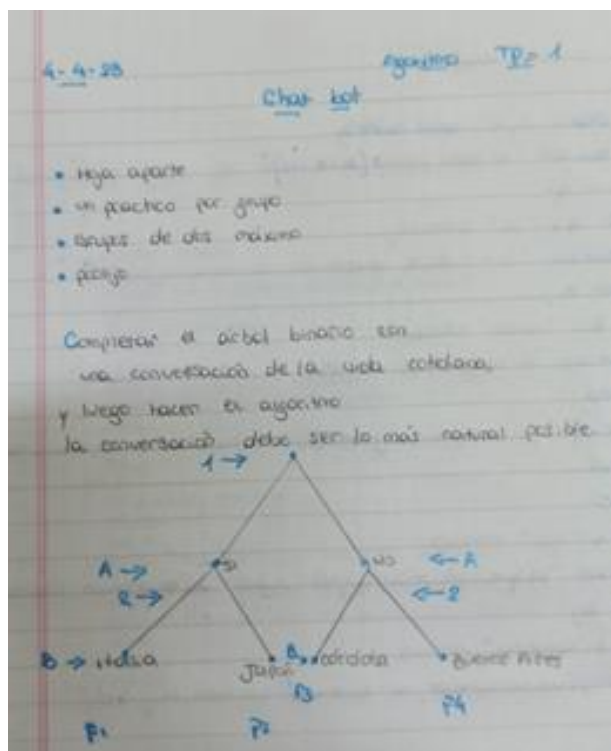 4-4-23 Algoritmo TP= 1
Chat bot
• Hoja aparte
• un practico por grupo
• Grupos de dos máximo
•
Completar el árbol binario con
una conversación de la vida cotidiana,
y luego hacer el algoritmo
la conversación debe ser lo más natural posible
1 →
A → Si NO ← A
2 → ← 2
B → Italia Japón B → Córdoba Buenos Aires
P1 P2 P3 P4